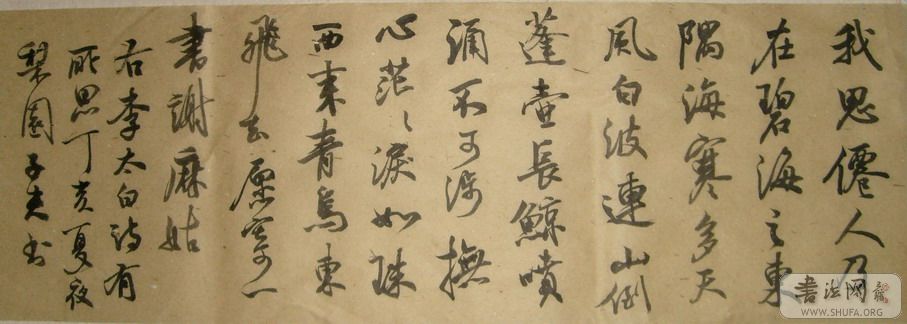 我思僊人乃
在碧海之東
隅海寒多天
風白波連山倒
蓬壺長鯨噴
涌不可涉撫
心茫〻淚如珠
西來青鳥東
飛去原寄一
書謝麻姑
右李太白詩有
所思丁亥夏夜
梨園子夫书
書法网
WWW.SHUFA.ORG